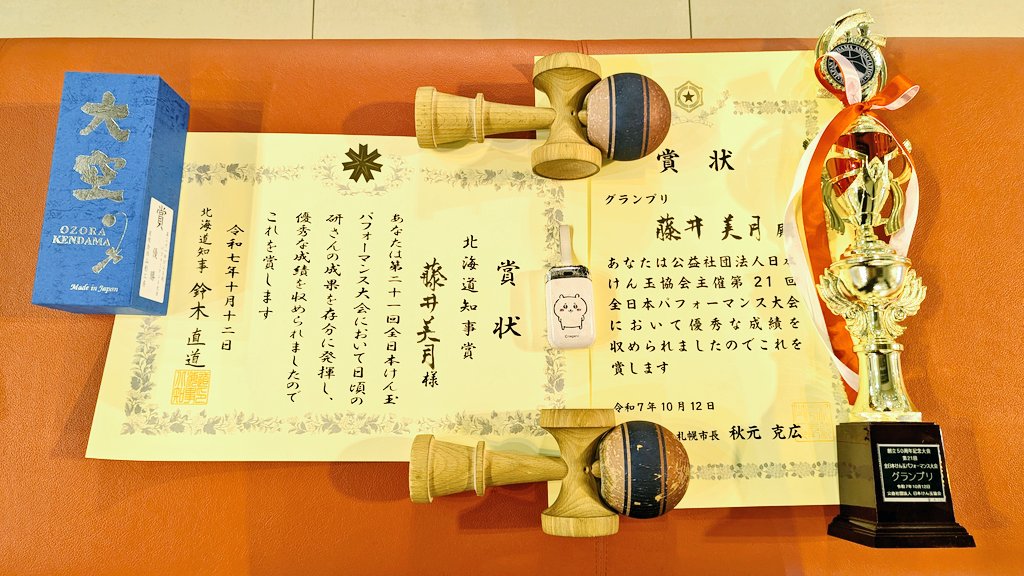 大空
OZORA
KENDAMA
Made in Japan
賞
優勝
賞状
北海道知事賞
藤井美月様
あなたは第二十一回全日本けん玉
パフォーマンス大会において日頃の
研さんの成果を存分に発揮し、
優秀な成績を収められましたので
これを賞します
令和七年十月十二日
北海道知事 鈴木直道
賞状
グランプリ
藤井美月 殿
あなたは公益社団法人日本
けん玉協会主催第21回
全日本パフォーマンス大会
において優秀な成績を
収められましたのでこれを
賞します
令和7年10月12日
札幌市長 秋元克広
創立50周年記念大会
第21回
全日本けん玉パフォーマンス大会
グランプリ
令和7年10月12日
公益社団法人 日本けん玉協会